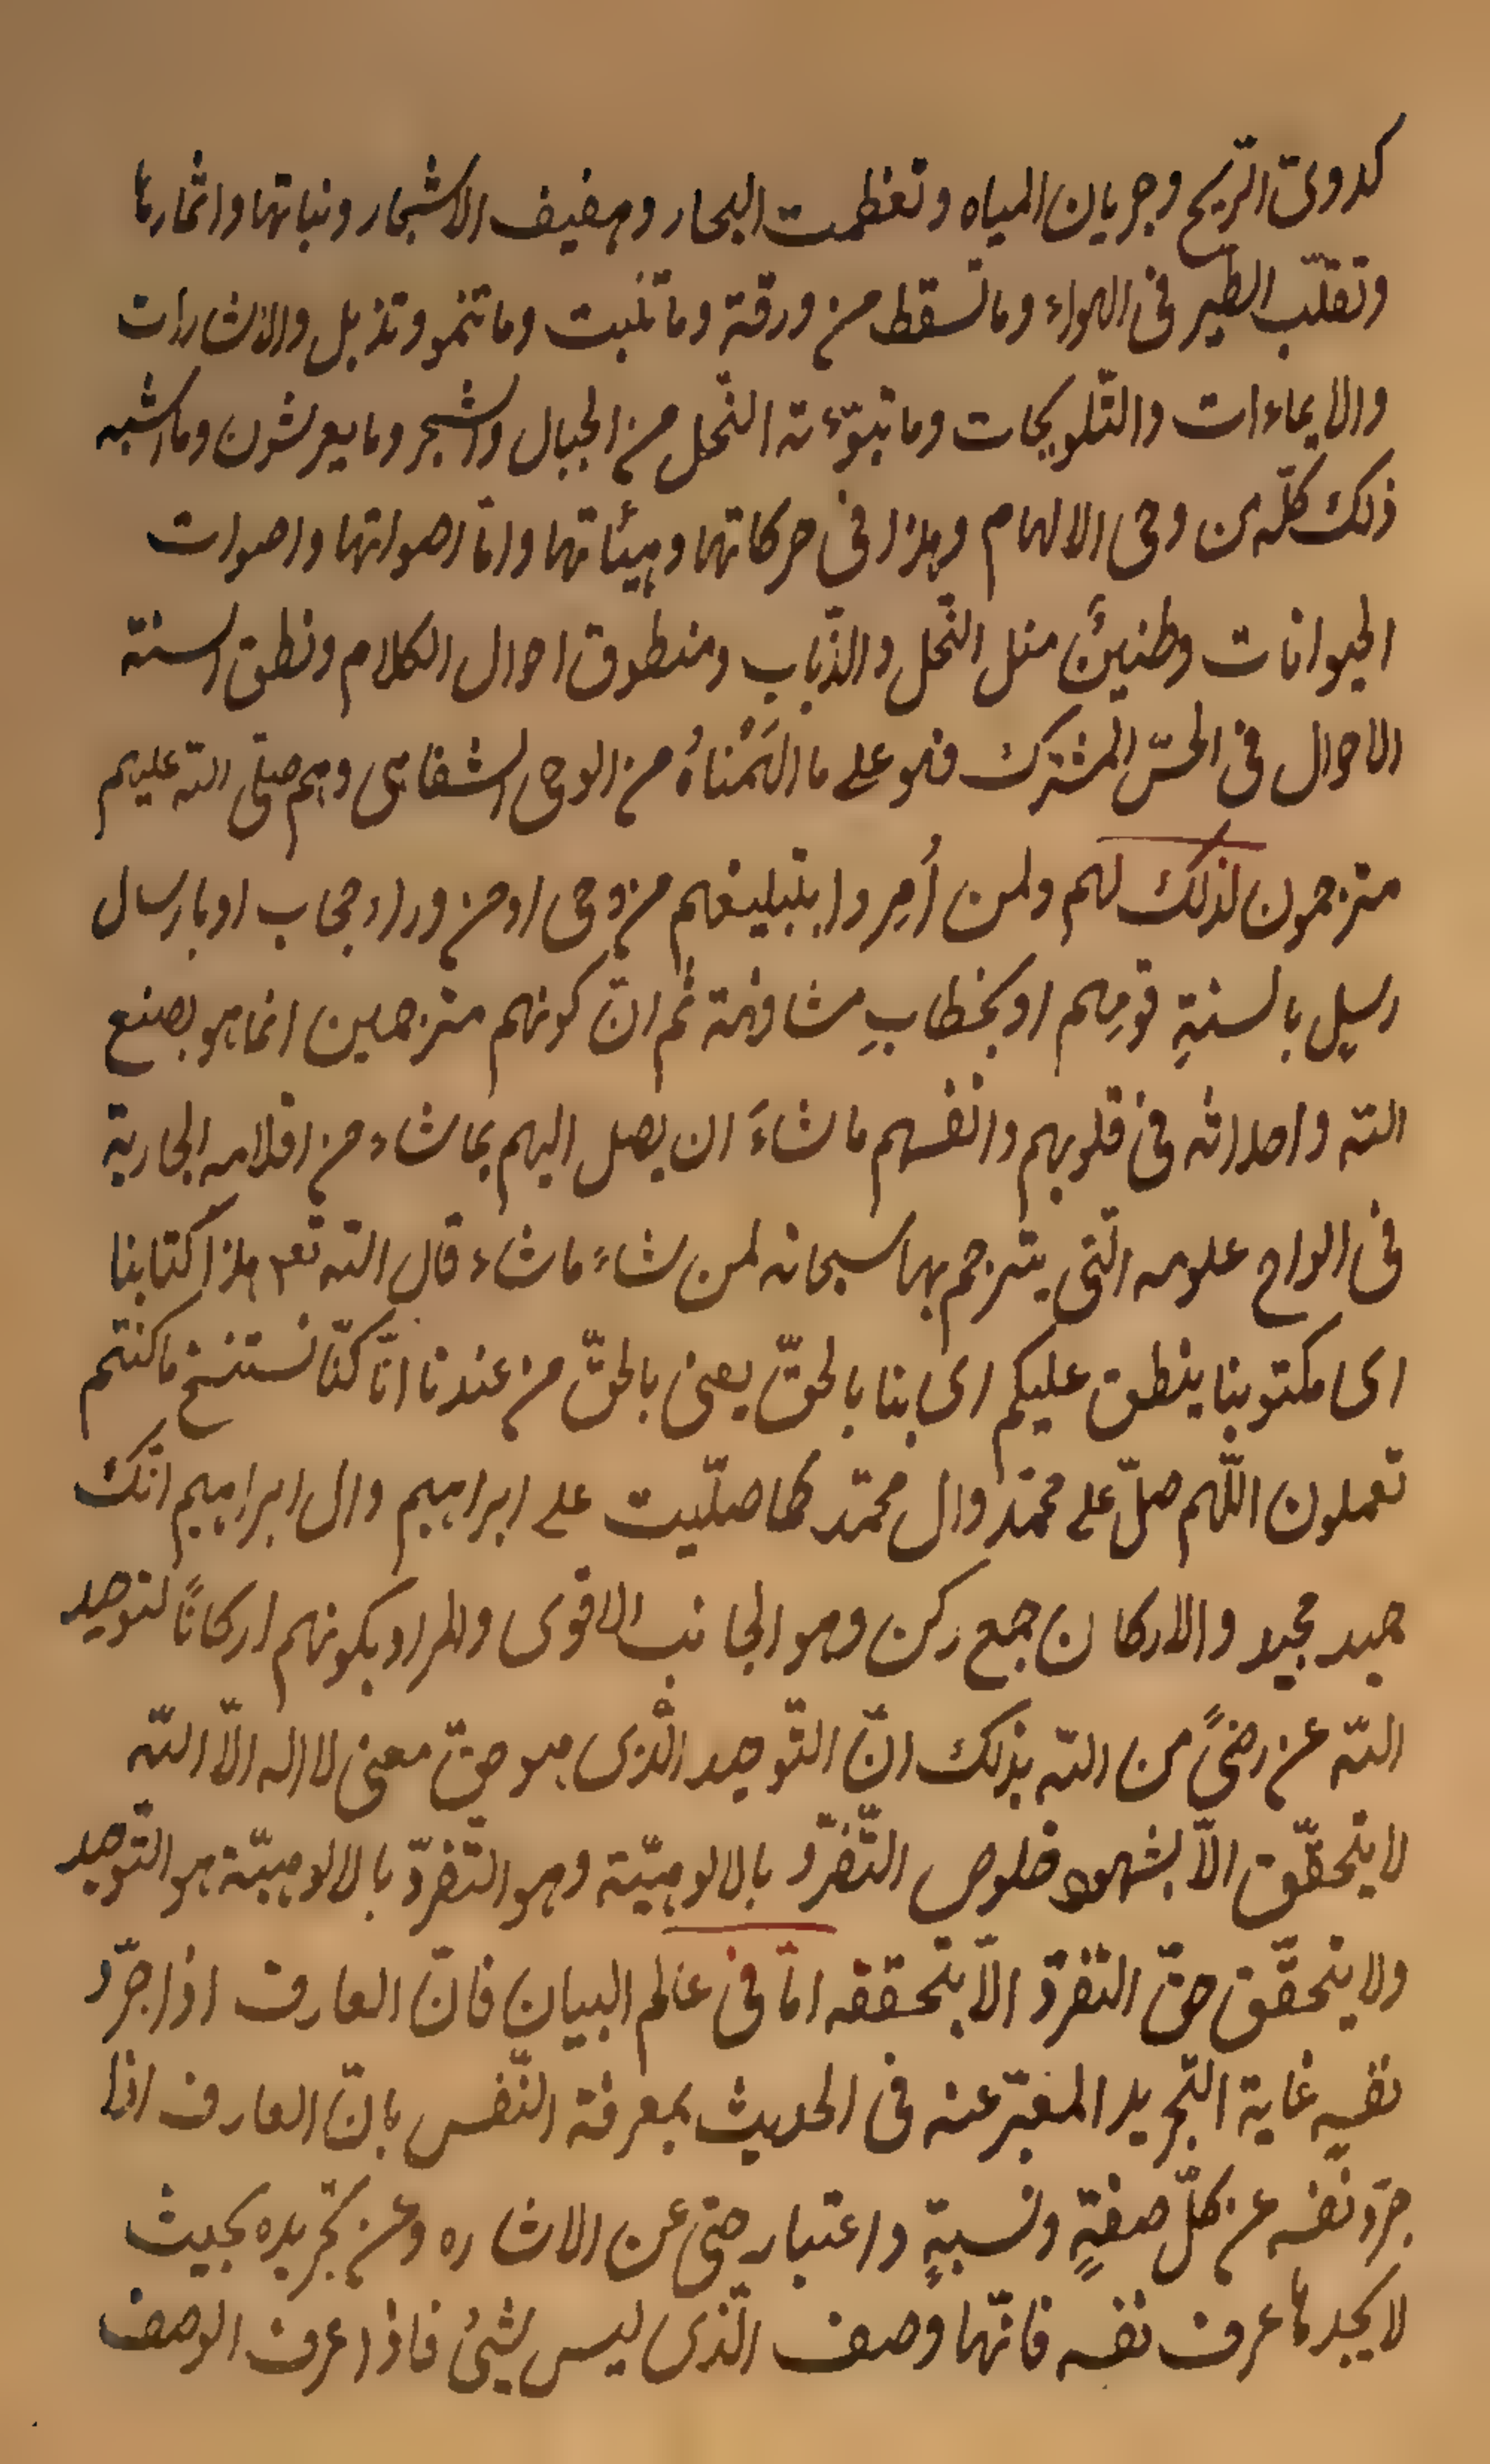 كدوىّ الرّيح وجريان المياه وتغظمت البحار وهفيف الاشجار ونباتها واثمارها
وتقلّب الطير فى الهواء وما تسقط من ورقة وما تنبت وما تنمو وتذبل والاشارات
والايماءات والتّلويحات وما تبوّءته النّحل من الجبال والشجر وما يعرشون وما اشبه
ذلك كلّه من وحى الالهام وهذا فى حركاتها وهيئاتها وامّا اصواتها واصوات
الحيوانات وطنينٌ مثل النّحل والذّباب ومنطوق احوال الكلام ونطق السنة
الاحوال فى الحسّ المشترك فهو على ما الهَمْناهُ من الوحى الشفاهى وهم صلّى اللّه عليهم
مترجمون لذلك لهم ولمن اُمِروا بتبليغهم من وحى او من وراء حجاب او بارسال
رسيل بالسنةِ قومِهم او بخطابِ مشافهة ثم انّ كونهم مترجمين انما هو بصنع
اللّه واحداثه فى قلوبهم وانفسهم ما شاءَ ان يصل اليهم بما شاء من اقلامه الجارية
فى الواح علومه الّتى يترجم بها سبحانه لمن شاءَ ما شاء قال اللّه تعم هذا كتابنا
اى مكتوبنا ينطق عليكم اى بنا بالحقّ يعنى بالحقّ من عندنا انّا كنّا نستنسخ ما كنتم
تعملون اللّهم صلّ على محمّد وال محمّد كما صلّيت على ابراهيم وال ابراهيم انّك
حميد مجيد والاركان جمع ركن وهو الجانب الاقوى والمراد بكونهم اركانًا لتوحيد
اللّه عن رضىً من اللّه بذلك انّ التّوحيد الّذى هو حقّ معنى لا اله الّا اللّه
لا يتحقّق الّا بشهود خلوص التّفرّد بالالوهيّة وهو التّفرّد بالالوهيّة هو التّوحيد
ولا يتحقّق حقّ التّفرّد الّا بتحققه امّا فى عالم البيان فانّ العارف اذا جرّد
نفسه غاية التّجريد المعبّر عنه فى الحديث بمعرفة النّفس بانّ العارف اذا
جرّد نفسه عن كلّ صفةٍ ونسبةٍ واعتبار حتى عن الاشاره وعن تجريده بحيث
لا يجدها عرف نفسه فانّها وصف الّذى ليس بشىءٍ فاذا عرف الوصف